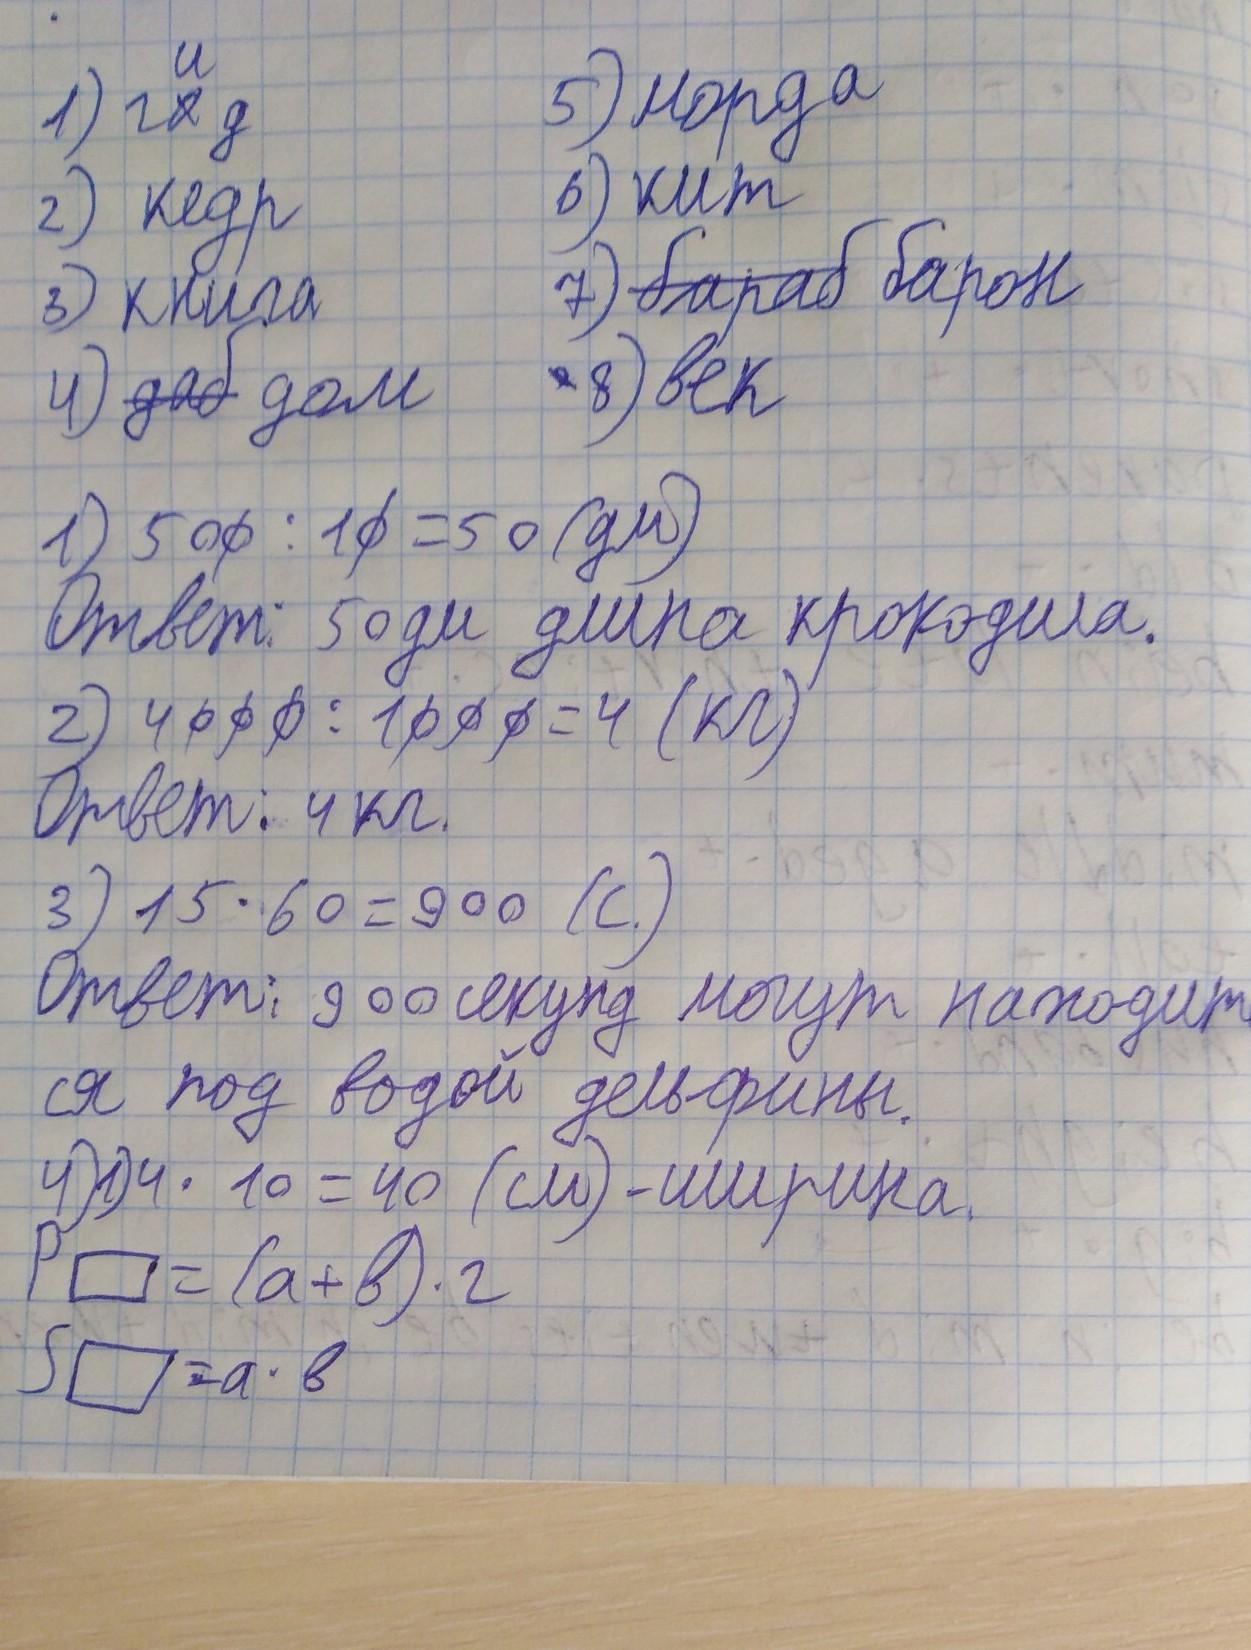 1) гид
2) кедр
3) книга
4) даб дом
5) морда
6) кит
7) бараб барон
8) век
1) 500 : 10 = 50 (дм)
Ответ: 50 дм длина крокодила.
2) 4000 : 1000 = 4 (кг)
Ответ: 4 кг.
3) 15 · 60 = 900 (с.)
Ответ: 900 секунд могут находит
ся под водой дельфины.
4) 1) 4 · 10 = 40 (см) - ширина.
P▭ = (а + в) · 2
S▭ = а · в